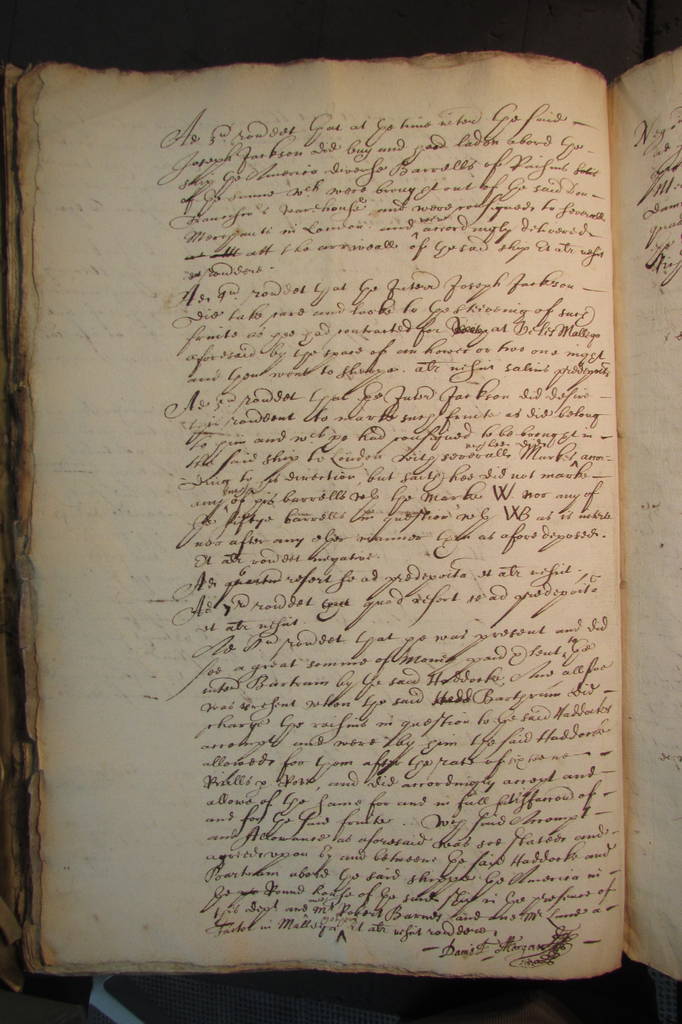 Ad 3um rondet that at the time interr the said
Joseph Jackson did buy and had laden abord the
ship the America diverse Barrells of Raisins
of the summe wch were brought out of the said Don
Francisco's warehouse and were consigned to severall
Merchants in London and were accordingly delivered
att the arrivall of the said ship Et alr nescit
rondere.
Ad 4um rondet that the Interr Joseph Jackson
did take care and looke to the of such
fruite as hee had contracted for at Velis Mallega
aforesaid by the space of an hower or two one night
and then went to sleepe. alr nescit salvis predeposits
Ad 5um rondet that the Interr Jackson did desire
this rondent to marke such fruite as did belong
to him and wch he had consigned to be brought in
the said ship to London with severall Markes
ding to his direction, but saith hee did not marke
any of his barrells wth the marke W nor any of
the fiftye barrells in question wth WB as is interr
nor after any other manner than as afore deposed.
Et alr rondet negative.
Ad refert se ad predeposita et alr nescit
Ad 7um rondet quod refert se ad predeposita
et alr nescit.
Ad 8um rondet that he was present and did
see a great somme of Monie paid to the
interr Bartram by the said Haddocke, And allsoe
was present when the said Bartram did
charge the raisins in question to the said Haddocks
accompt and were by him the said Haddock
allowed for them after the rate of
Rialls p , and did accordingly accept and
allowe of the same for and in full of
and for the said fruite. Wch said Accompt
and Allowance as aforesaid was soe stated and
agreed upon by and betweene the said Haddocke and
Bartram abord the said shippe the America in
the Round house of the said ship in the presence of
this dept and Mr Robert Barnes and one Mr a
Factor in Mallega Et alr nescit rondere.
Daniel Morgan